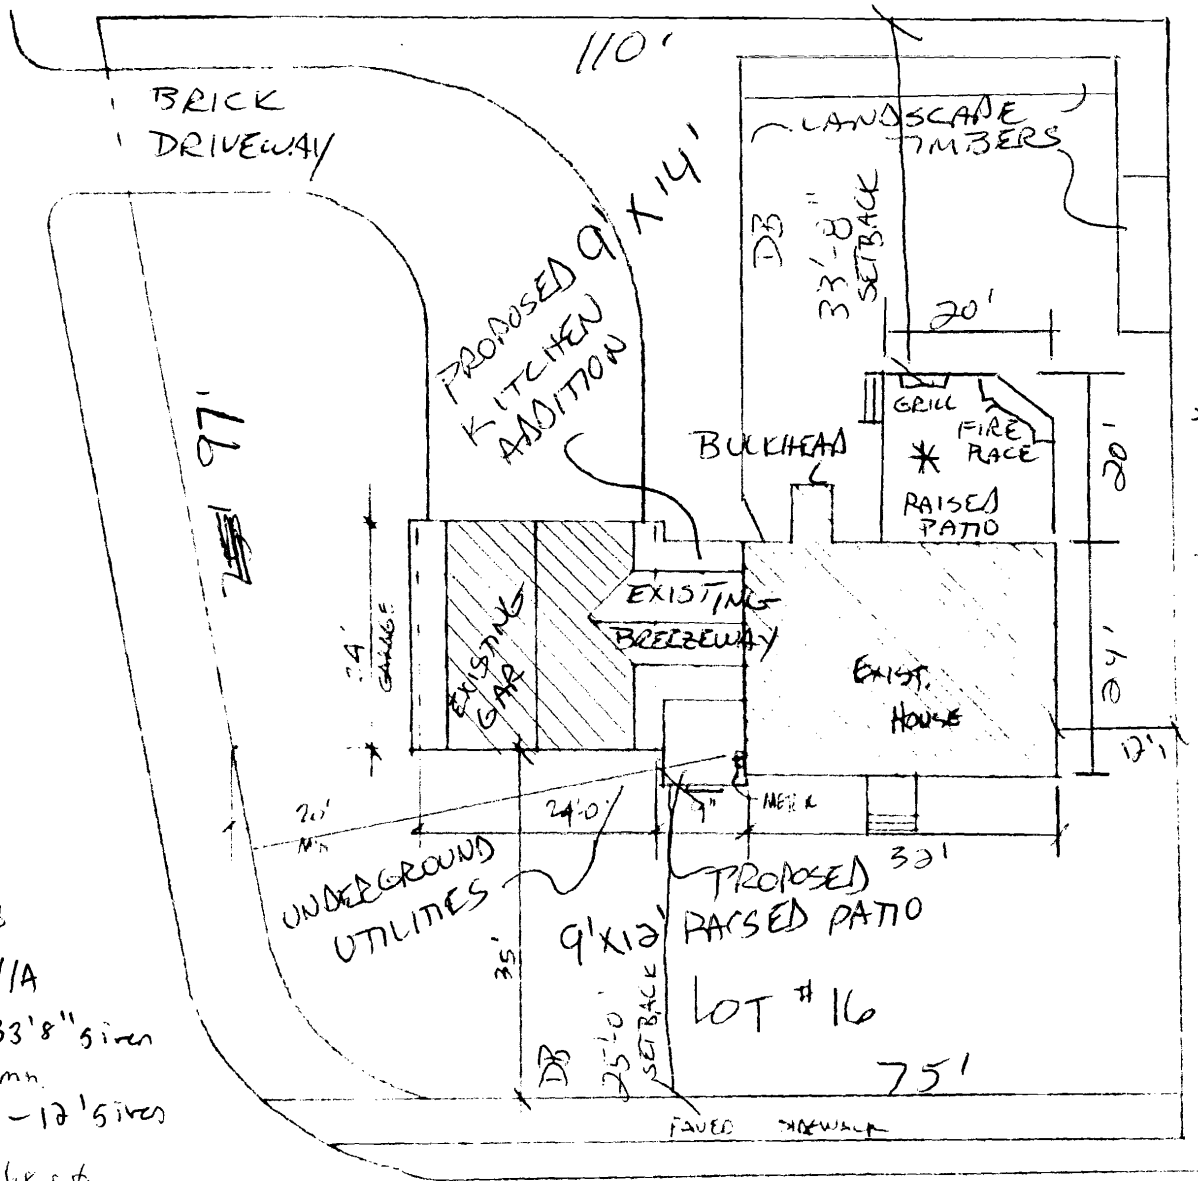 110'
BRICK
DRIVEWAY
LANDSCAPE
TIMBERS
PROPOSED 9' X 14'
KITCHEN
ADDITION
DB
33'-8"
SETBACK
20'
97'
GRILL
FIRE
PLACE
BULKHEAD
RAISED
PATIO
20'
24'
GARAGE
EXISTING
GAR
EXISTING
BREEZEWAY
EXIST.
HOUSE
24'
12'
20'
MIN
24'-0"
9"
METER
32'
UNDERGROUND
UTILITIES
PROPOSED
9'X12' RAISED PATIO
35'
DB
25'-0"
SETBACK
LOT #16
75'
PAVED SIDEWALK
/A
33'8" given
min.
-12' gives